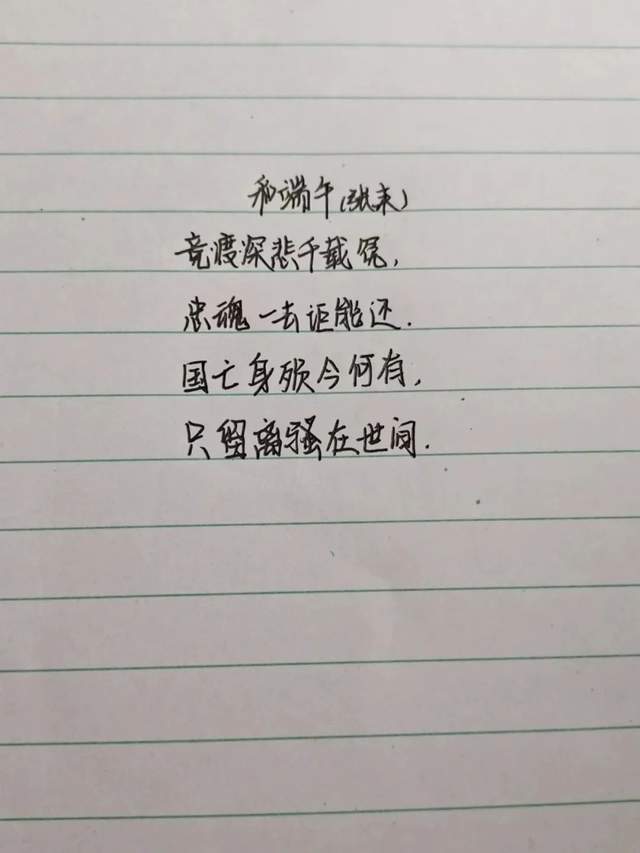 和端午(张耒)
竞渡深悲千载冤,
忠魂一去讵能还.
国亡身殒今何有,
只留离骚在世间.